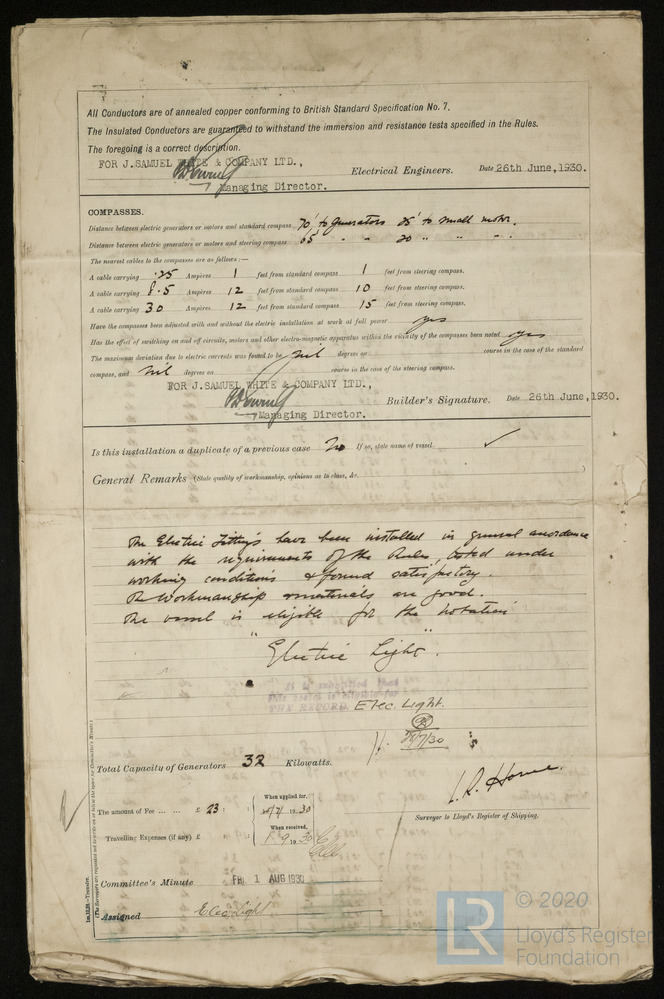 All Conductors are of annealed copper conforming to British Standard Specification No. 7.
The Insulated Conductors are guaranteed to withstand the immersion and resistance tests specified in the Rules.
The foregoing is a correct description.
FOR J.SAMUEL WHITE & COMPANY LTD.,
Electrical Engineers. Date 26th June,1930.
Managing Director.
COMPASSES.
Distance between electric generators or motors and standard compass 70' to generators 25' to small motor.
Distance between electric generators or motors and steering compass 65 " " 20 " " "
The nearest cables to the compasses are as follows:—
A cable carrying .25 Ampères 1 feet from standard compass 1 feet from steering compass.
A cable carrying 8.5 Ampères 12 feet from standard compass 10 feet from steering compass.
A cable carrying 30 Ampères 12 feet from standard compass 15 feet from steering compass.
Have the compasses been adjusted with and without the electric installation at work at full power yes
Has the effect of switching on and off circuits, motors and other electro-magnetic apparatus within the vicinity of the compasses been noted yes
The maximum deviation due to electric currents was found to be nil degrees on course in the case of the standard
compass, and nil degrees on course in the case of the steering compass.
FOR J.SAMUEL WHITE & COMPANY LTD.,
Builder's Signature. Date 26th June,1930.
Managing Director.
Is this installation a duplicate of a previous case No If so, state name of vessel ✓
General Remarks (State quality of workmanship, opinions as to class, &c.
The Electric Fittings have been installed in general accordance
with the requirements of the Rules, tested under
working conditions & found satisfactory.
The Workmanship & materials are good.
The vessel is eligible for the notation
"Electric Light".
It is submitted that
this vessel is eligible for
THE RECORD. Elec. Light.
28/7/30
Total Capacity of Generators 32 Kilowatts.
L.R. Horne.
Surveyor to Lloyd's Register of Shipping.
The amount of Fee ... ... £ 23 :
When applied for,
19 30
Travelling Expenses (if any) £
When received,
1 9 19 30
Committee's Minute FRI. 1 AUG 1930
Assigned Elec Light
© 2020
LR
Lloyd's Register
Foundation